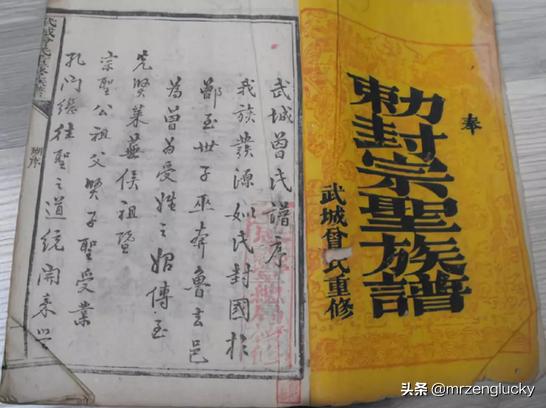 奉
勅封宗聖族譜
武城曾氏重修
武城曾氏譜序
我族發源姒氏封國於
鄫至世子巫奔魯去邑
為曾為受姓之始傳至
先賢萊蕪侯祖暨
宗聖公祖父賢子聖受業
孔門繼往聖之道統開來學
武城曾氏重修
头条 @mrzenglucky